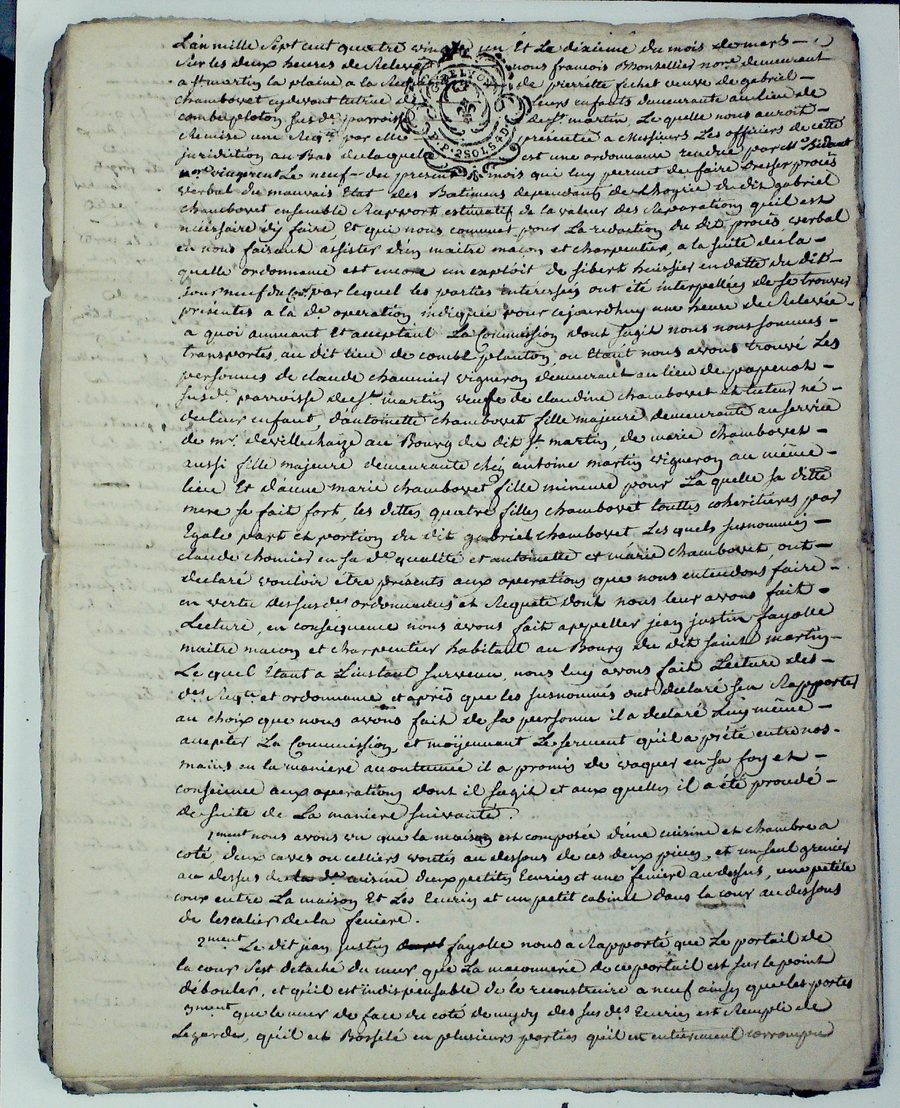 L'an mille sept cent quatre vingt un Et Le dixieme du mois de mars
sur les deux heures de Relevée nous françois Bonsellier nore demeurant
a st martin la plaine a la Requete de pierrette fichet veuve de gabriel
chambovet cydevant tutrice de leurs enfants demeurante au lieu de
combeploton susde parroisse de st martin Le quelle nous auroit
Remise une Reqte par elle présentée a Messieurs Les officiers de cette
juridition au Bas de laquelle est une ordonnance rendue par Mr
Le neuf du present mois qui luy permet de faire Dresser procès
verbal du mauvais Etat des Batimens dependants de du dit gabriel
chambovet ensemble Rapport estimatif de la valeur des Reparations qu'il est
nécessaire d'y faire Et qui nous commet pour La redaction du dit procès verbal
en nous faisant assister d'un maitre maçon et charpentier, a la suite de la
quelle ordonnance est encore un exploit de Sibert huissier en datte du dit
jour neuf du ct par lequel les parties interessés ont été interpellées de se trouver
présentes a la de operation indiquée pour cejourdhuy une heure de Relevée
a quoi aimant Et acceptant La Commission dont s'agit nous nous sommes
transportés au dit lieu de combe plouton, ou Etant nous avons trouvé Les
personnes de claude chaumier vigneron demeurant au lieu de
susde parroisse de st martin veuf de claudine chambovet et tuteur né
de leur enfant, d'antoinette chambovet fille majeure demeurante au service
de mr. devillechaize au Bourg du dit st martin, de marie chambovet
aussi fille majeure demeurante chez antoine martin vigneron au même
lieu Et d'anne marie chambovet fille mineure pour La quelle sa ditte
mere se fait fort, les dittes quatre filles chambovet touttes coheritieres par
Egale part et portion du dit gabriel chambovet Les quels susnommés
claude chomier en sa de qualité et antoinette et marie chambovet ont
declaré vouloir etre présents aux operations que nous entendons faire
en vertu des susdes ordonnances et Requete dont nous leur avons fait
Lecture, en conséquence nous avons fait appeller jean justin fayolle
maitre maçon et charpentier habitant au Bourg du dit saint martin
Le quel Etant a L'instant survenu, nous luy avons fait Lecture des
des Reqte et ordonnance et aprés que les susnommés ont declaré s'en Rapporter
au choix que nous avons fait de sa personne il a declaré Luy même
accepter La Commission, et moÿennant Le serment qu'il a prété entre nos
mains en la maniere accoutumée il a promis de vaquer en sa foy et
conscience aux operations dont il s'agit et aux quelles il a été procédé
de suite de La maniere suivante.
1ment nous avons vu que la maison est composée d'une cuisine et chambre a
coté, deux caves ou celliers voutés au dessous de ces deux pieces, et un seul grenier
au dessus de la de cuisine deux petites Ecuries et une feniere au dessus, une petite
cour entre La maison Et Les Ecuries et un petit cabinet dans la cour au dessous
de lescalier de la feniere.
2ment Le dit jean justin fayolle nous a Rapporté que Le portail de
la cour s'est detaché du mur, que La maconnerie de ce portail est sur le point
d'ébouler, et qu'il est indispensable de le reconstruire a neuf ainsy que les portes
3ment que le mur de face du coté de mydy des susdes Ecuries est Rempli de
Lezardes, qu'il est Bosselé en plusieurs parties qu'il est entierement corrompu